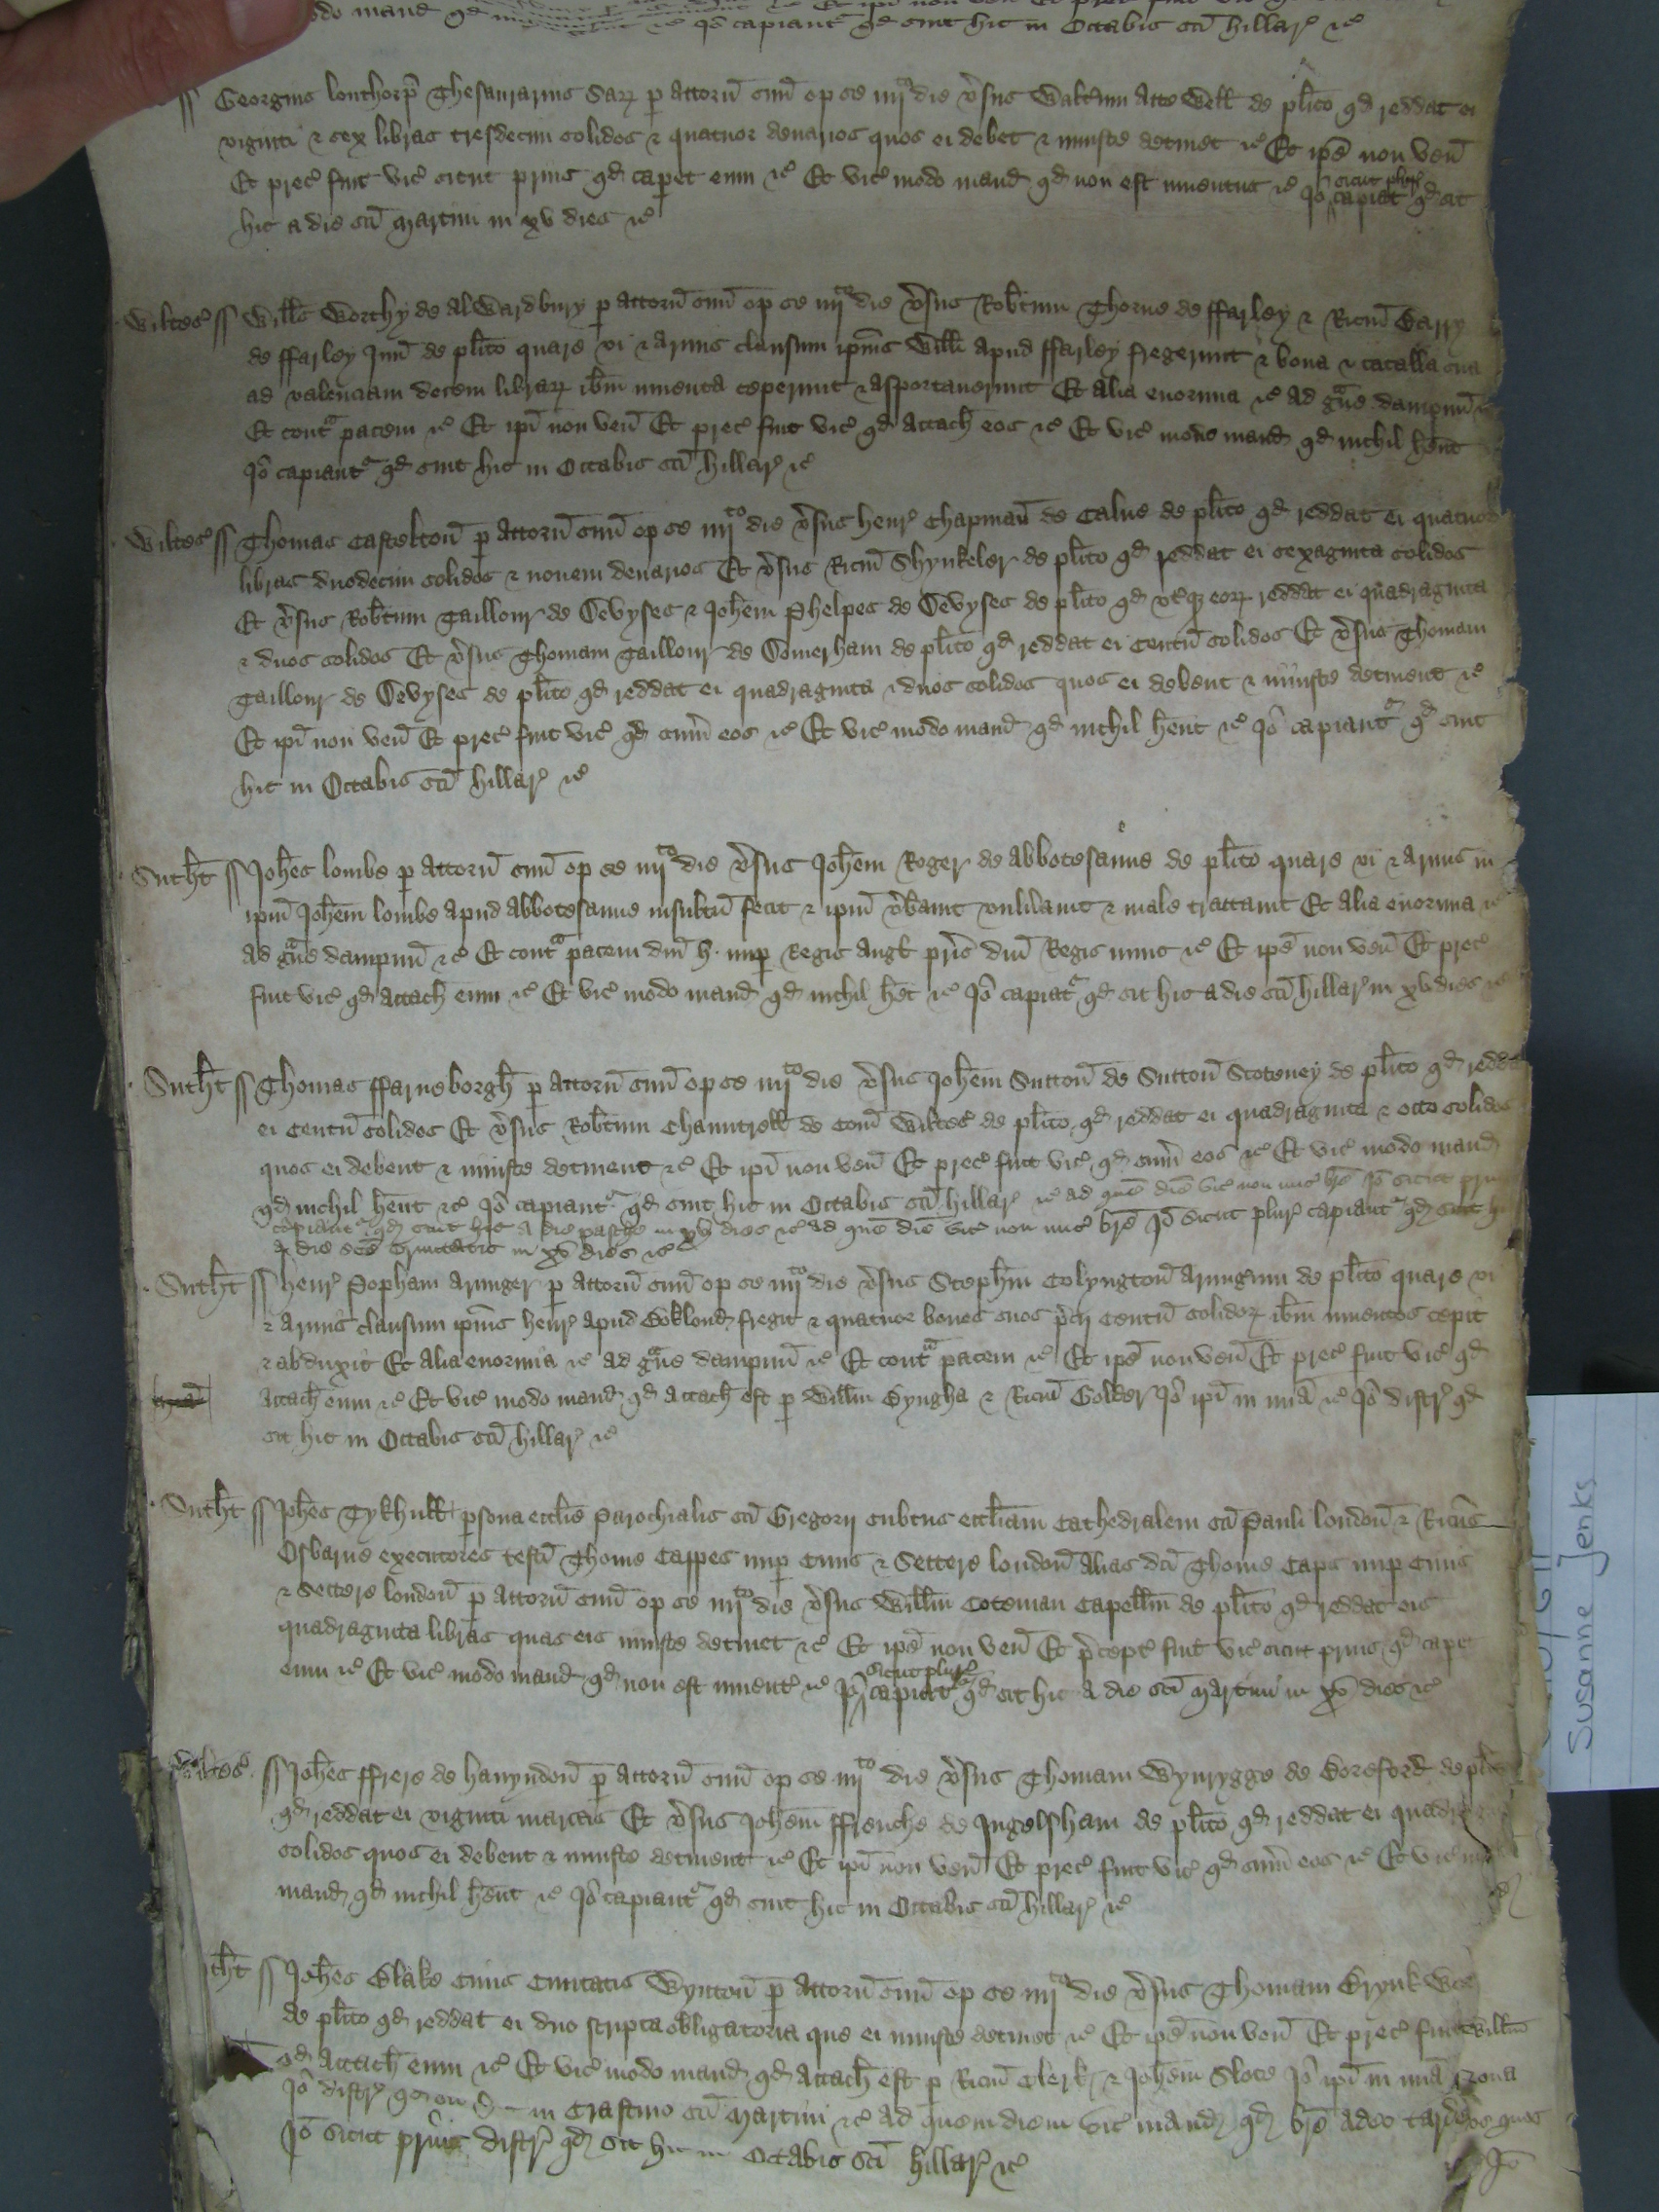 modo mand qd
capiant qd sint hic in Octabis sci hillar' &c
ss Georgius lonthorp Thesaurarius Sar' p attorn suu op se iiijto die v'sus Walterum atte Well de plito qd reddat ei
viginti & sex libras tresdecim solidos & quatuor denarios quos ei debet & iniuste detinet &c Et ipe non ven
Et prec' fuit vic' sicut prius qd caperet eum &c Et vic' modo mand qd non est inuentus &c Jo sicut plur' capiat' qd sit
hic a die sci Martini in xv dies &c
Wiltes' ss Wills Worthy de Alwardbury p attorn suu op se iiijto die v'sus Robtum Thorne de ffarley & Ricm Barry
de ffarley Jun' de plito quare vi & armis clausum ipius Willi apud ffarley fregerunt & bona & catalla sua
ad valenciam decem librar' ibm inuenta ceperunt & asportauerunt Et alia enormia &c ad graue dampnu &c
Et contra pacem &c Et ipi non ven Et prec' fuit vic' qd attach eos &c Et vic' modo mand qd nichil hent
Jo capiant' qd sint hic in Octabis sci hillar' &c
Wiltes' ss Thomas Castelton p attorn suu op se iiijto die v'sus henr' Chapman de Calne de plito qd reddat ei quatuor
libras duodecim solidos & nouem denarios Et v'sus Ricm Shynkeler de plito qd reddat ei sexaginta solidos
Et v'sus Robtum Taillour de Devyses & Johem Phelpes de Devyses de plito qd vterq eor' reddat ei quadraginta
& duos solidos Et v'sus Thomam Taillour de Somerham de plito qd reddat ei Centu solidos Et v'sus Thomam
Taillour de Devyses de plito qd reddat ei quadraginta & duos solidos quos ei debent & iniuste detinent &c
Et ipi non ven Et prec' fuit vic' qd sum eos &c Et vic' modo mand qd nichil hent &c Jo capiant' qd sint
hic in Octabis sci hillar' &c
Sutht ss Johes lombe p attorn suu op se iiijto die v'sus Johem Roger de abbotesanne de plito quare vi & armis in
ipm Johem lombe apud Abbotesanne insultu fecit & ipm v'bauit vulnauit & male tractauit Et alia enormia &c
ad graue dampnu &c Et contra pacem dni h. nup Regis Angl pris dni Regis nunc &c Et ipe non ven Et prec'
fuit vic' qd attach eum &c Et vic' modo mand qd nichil het &c Jo capiat' qd sit hic a die sci hillar' in xv dies &c
Sutht ss Thomas ffarneborgh p attorn suu op se iiijto die v'sus Johem Sutton de Sutton Scoteney de plito qd reddat
ei Centu solidos Et v'sus Robtum Chauntrell de Com Wiltes' de plito qd reddat ei quadraginta & octo solidos
quos ei debent & iniuste detinent &c Et ipi non ven Et prec' fuit vic' qd sum eos &c Et vic' modo mand
qd nichil hent &c Jo capiant' qd sint hic in Octabis sci hillar' &c ad que die vic' non mis' bre Jo sicut prius
capiant' qd sint hic a die pasche in xv dies &c ad que die vic' non mis' bre Jo sicut plur' capiant' qd sint hic
a die sce trinitatis in xv dies &c
Sutht ss henr' Popham Armiger p attorn suu op se iiijto die v'sus Stephm Colyngton Armigum de plito quare vi
& armis clausum ipius henr' apud Boklond fregit & quatuor boues suos p'cij Centu solidor' ibm inuentos cepit
& abduxit Et alia enormia &c ad graue dampnu &c Et contra pacem &c Et ipe non ven Et prec' fuit vic' qd
attach eum &c Et vic' modo mand qd attach est p Willm Byngha & Ricm Golder Jo ipi in mia &c Jo distr' qd
sit hic in Octabis sci hillar' &c
Sutht ss Johes Tykhull psona ecclie parochialis sci Gregorij subtus eccliam Cathedralem sci Pauli london & Ricus
Osbarne executores testi Thome Cappes nup Ciuis & Settere london alias dci Thome Caps nup Ciuis
& Settere london p attorn suu op se iiijto die v'sus Willm Coteman Capellm de plito qd reddat eis
quadraginta libras quas eis iniuste detinet &c Et ipe non ven Et p'cept' fuit vic' sicut prius qd capet
eum &c Et vic' modo mand qd non est inuent' &c Jo sicut plur' capiat' qd sit hic a die sci Martini in xv dies &c
Wiltes' ss Johes ffrere de hanyndon p attorn suu op se iiijto die v'sus Thomam Wynrygge de Boreford de plito
qd reddat ei viginti marcas Et v'sus Johem ffrenche de Ingelsham de plito qd reddat ei quadraginta
solidos quos ei debent & iniuste detinent &c Et ipi non ven Et prec' fuit vic' qd sum eos &c Et vic' modo
mand qd nichil hent &c Jo capiant' qd sint hic in Octabis sci hillar' &c
Sutht ss Johes Blake Ciuis Ciuitatis Wynton p attorn suu op se iiijto die v'sus Thomam Brynk
de plito qd reddat ei duo scripta obligatoria que ei iniuste detinet &c Et ipe non ven Et prec' fuit
qd attach eum &c Et vic' modo mand qd attach est p Ricm Clerk & Johem Slote Jo ipi in mia
Jo distr' qd sit in Crastino sci Martini &c ad quem diem vic' mand qd bre adeo tarde
Jo sicut prius distr' qd sit hic in Octabis sci hillar' &c
Susanne Jenks